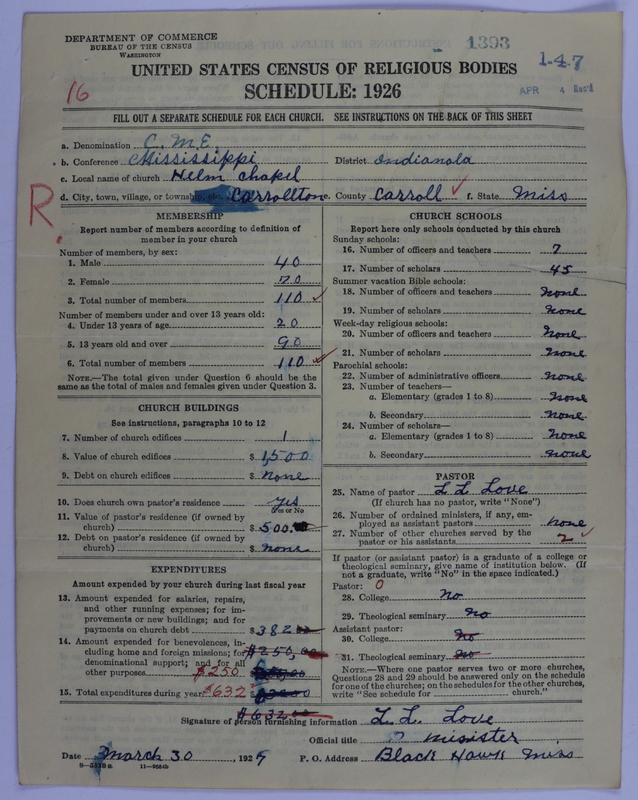 DEPARTMENT OF COMMERCE
BUREAU OF THE CENSUS
WASHINGTON
1393
1-4-7
APR 4 Rec'd
UNITED STATES CENSUS OF RELIGIOUS BODIES
SCHEDULE: 1926
16
FILL OUT A SEPARATE SCHEDULE FOR EACH CHURCH. SEE INSTRUCTIONS ON THE BACK OF THIS SHEET
a. Denomination C. M. E.
b. Conference Mississippi District Indianola
c. Local name of church Helm Chapel
d. City, town, village, or township, etc. Carrollton e. County Carroll f. State Miss
R.
MEMBERSHIP
Report number of members according to definition of
member in your church
Number of members, by sex:
1. Male 40
2. Female 70
3. Total number of members 110
Number of members under and over 13 years old:
4. Under 13 years of age 20
5. 13 years old and over 90
6. Total number of members 110
NOTE.—The total given under Question 6 should be the
same as the total of males and females given under Question 3.
CHURCH BUILDINGS
See instructions, paragraphs 10 to 12
7. Number of church edifices 1
8. Value of church edifices $ 1,500
9. Debt on church edifices $ none
10. Does church own pastor's residence yes
Yes or No
11. Value of pastor's residence (if owned by
church) $ 500.
12. Debt on pastor's residence (if owned by
church) $ none
EXPENDITURES
Amount expended by your church during last fiscal year
13. Amount expended for salaries, repairs,
and other running expenses; for im-
provements or new buildings; and for
payments on church debt $ 382
14. Amount expended for benevolences, in-
cluding home and foreign missions; for $250,00
denominational support; and for all
other purposes $250
15. Total expenditures during year $632
$632
CHURCH SCHOOLS
Report here only schools conducted by this church
Sunday schools:
16. Number of officers and teachers 7
17. Number of scholars 45
Summer vacation Bible schools:
18. Number of officers and teachers none
19. Number of scholars none
Week-day religious schools:
20. Number of officers and teachers none
21. Number of scholars none
Parochial schools:
22. Number of administrative officers none
23. Number of teachers—
a. Elementary (grades 1 to 8) none
b. Secondary none
24. Number of scholars—
a. Elementary (grades 1 to 8) none
b. Secondary none
PASTOR
25. Name of pastor L L Love
(If church has no pastor, write "None")
26. Number of ordained ministers, if any, em-
ployed as assistant pastors none
27. Number of other churches served by the
pastor or his assistants 2
If pastor (or assistant pastor) is a graduate of a college or
theological seminary, give name of institution below. (If
not a graduate, write "No" in the space indicated.)
Pastor: 0
28. College No
29. Theological seminary No
Assistant pastor:
30. College No
31. Theological seminary No
NOTE.—Where one pastor serves two or more churches,
Questions 28 and 29 should be answered only on the schedule
for one of the churches; on the schedules for the other churches,
write "See schedule for church."
Signature of person furnishing information L. L. Love
Official title minister
Date March 30, 1927 P. O. Address Black Hawk Miss
8-5818 a 11-9584b